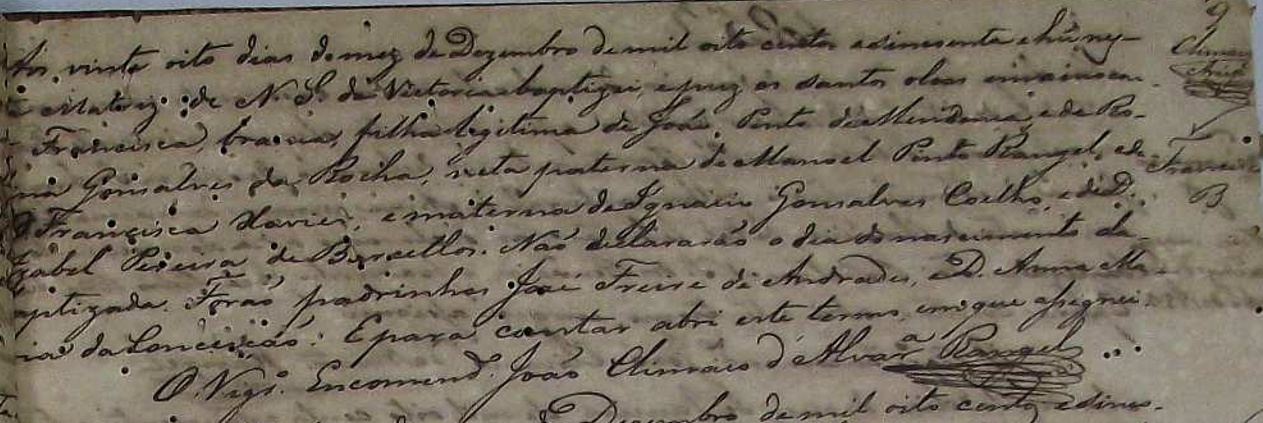 Aos vinte oito dias do mez de Dezembro de mil oito centos e sincoenta e hũ nes-
ta Matriz de N. S. da Victoria baptizei, e puz os santos oleos a innocen-
Francisca, branca, filha legitima de João Pinto de Mendonça, e de Ro-
na Gonsalves da Rocha, neta paterna de Manoel Pinto Rangel, e de
D Francisca Xavier, e materna de Ignacio Gonsalves Coelho, e de D.
Izabel Pereira de Barcellos. Não declararão o dia do nascimento da
aptizada. Forão padrinhos José Freire de Andrade, e D. Anna Ma-
ria da Conceição. E para constar abri este termo, em que assignei
O Vigr.º Encomend.º João Climaco d'Alvar.ª Rangel
Dezembro de mil oito centos e sinco-
9
Francisca
B